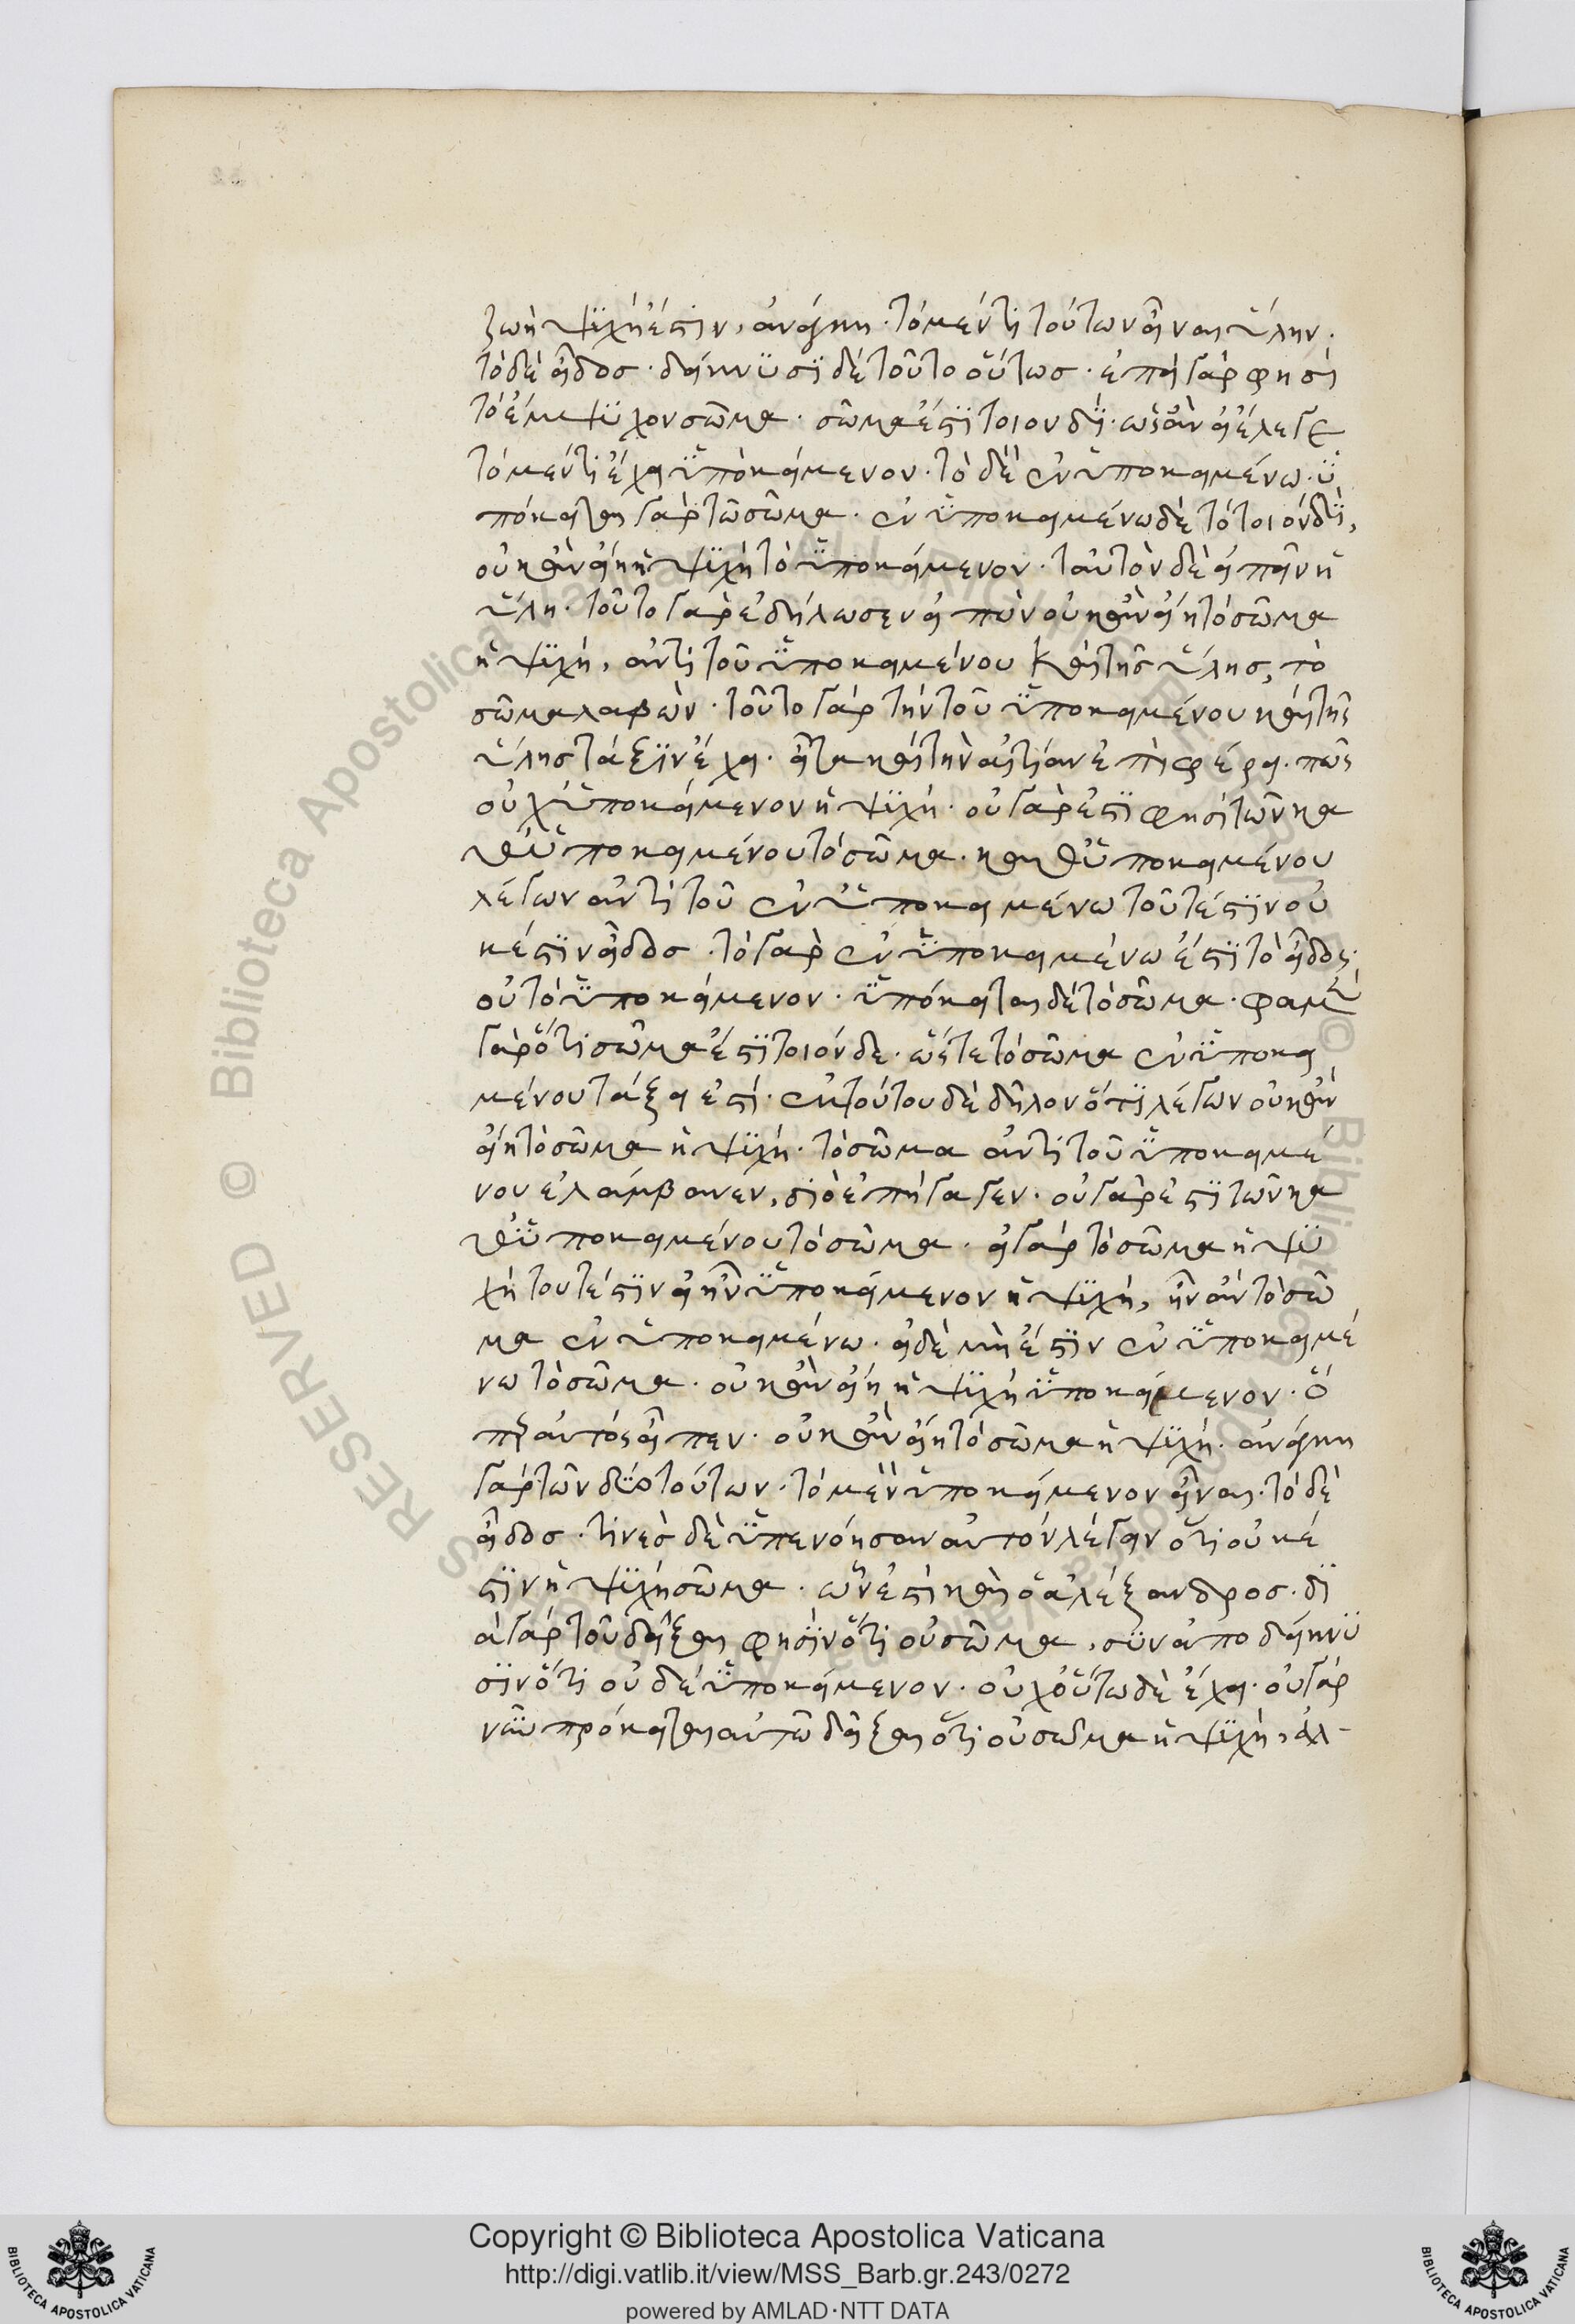 ζωὴ ψϋχή ἐστϊν, ἀνάγκη· τὸ μέν τι τούτων εἶναι ὕλην·
τὸ δὲ εἶδος· δείκνϋσϊ δὲ τοῦτο οὕτως· ἐπεὶ γάρ φησὶ
τὸ ἔμψϋχον σῶμα· σῶμα ἐστϊ τοιονδϊ· ὡσὰν εἰ ἔλεγε
τὸ μέν τι ἔχει ὑποκείμενον· τὸ δὲ ἐν ὑποκειμένω· ὑ
πόκειται γὰρ τῶ σῶμα· ἐν ὑποκειμένω δὲ τὸ τοιόνδϊ,
οὐκ ἂν εἴη ἡ ψϋχὴ τὸ ὑποκείμενον· ταὐτὸν δὲ εἰπεῖν ἡ
ὕλη· τοῦτο γὰρ ἐδήλωσεν εἰπὼν οὐκ ἂν εἴη τὸ σῶμα
ἡ ψϋχή, ἀντὶ τοῦ ὑποκειμένου καὶ τῆς ὕλης, τὸ
σῶμα λαβὼν· τοῦτο γὰρ τὴν τοῦ ὑποκειμένου καὶ τῆς
ὕλης τάξϊν ἔχει· εἶτα καὶ τὴν αἰτίαν ἐπιφέρει· πῶς
οὐχ ὑποκείμενον ἡ ψϋχή· οὐ γάρ ἐστϊ φησὶ τῶν κα
θ' ὑποκειμένου τὸ σῶμα· καθ' ὑποκειμένου
λέγων ἀντὶ τοῦ ἐν ὑποκειμένω τοῦτέστϊν οὐ
κέστϊν εἶδος· τὸ γὰρ ἐν ὑποκειμένω ἐστϊ τὸ εἶδος·
οὐ τὸ ὑποκείμενον· ὑπόκειται δὲ τὸ σῶμα· φαμὲν
γὰρ ὅτι σῶμα ἐστϊ τοιόνδε· ὥστε τὸ σῶμα ἐν ὑποκει
μένου τάξει ἐστί· ἐκ τούτου δὲ δῆλον ὅτϊ λέγων οὐκ ἂν
εἴη τὸ σῶμα ἡ ψϋχή· τὸ σῶμα ἀντὶ τοῦ ὑποκειμέ
νου ἐλάμβανεν, διὸ ἐπήγαγεν· οὐ γάρ ἐστϊ τῶν κα
θ' ὑποκειμένου τὸ σῶμα· εἰ γὰρ τὸ σῶμα ἡ ψϋ
χὴ τουτέστϊν εἰ ἦν ὑποκείμενον ἡ ψϋχή, ἦν ἂν τὸ σῶ
μα ἐν ὑποκειμένω· εἰ δὲ μή ἐστϊν ἐν ὑποκειμέ
νω τὸ σῶμα· οὐκ ἂν εἴη ἡ ψϋχὴ ὑποκείμενον· ὅ
περ αὐτὸς εἶπεν· οὐκ ἂν εἴη τὸ σῶμα ἡ ψϋχή· ἀνάγκη
γὰρ τῶν δύο τούτων· τὸ μὲν ὑποκείμενον εἶναι· τὸ δὲ
εἶδος· τινὲς δὲ ὑπενόησαν αὐτὸν λέγειν ὅτι οὐκέ
στϊν ἡ ψϋχὴ σῶμα· ὧν ἐστὶ καὶ ὁ ἀλέξανδρος· δϊ
ὰ γὰρ τοῦ δεῖξαι φησϊν ὅτι οὐ σῶμα, συναποδείκνϋ
σϊν ὅτι οὐδὲ ὑποκείμενον· οὐχ οὕτω δὲ ἔχει· οὐ γὰρ
νῦν πρόκειται αὐτῶ δεῖξαι ὅτι οὐ σῶμα ἡ ψϋχή, ἀλ-
Copyright © Biblioteca Apostolica Vaticana
http://digi.vatlib.it/view/MSS_Barb.gr.243/0272
powered by AMLAD·NTT DATA